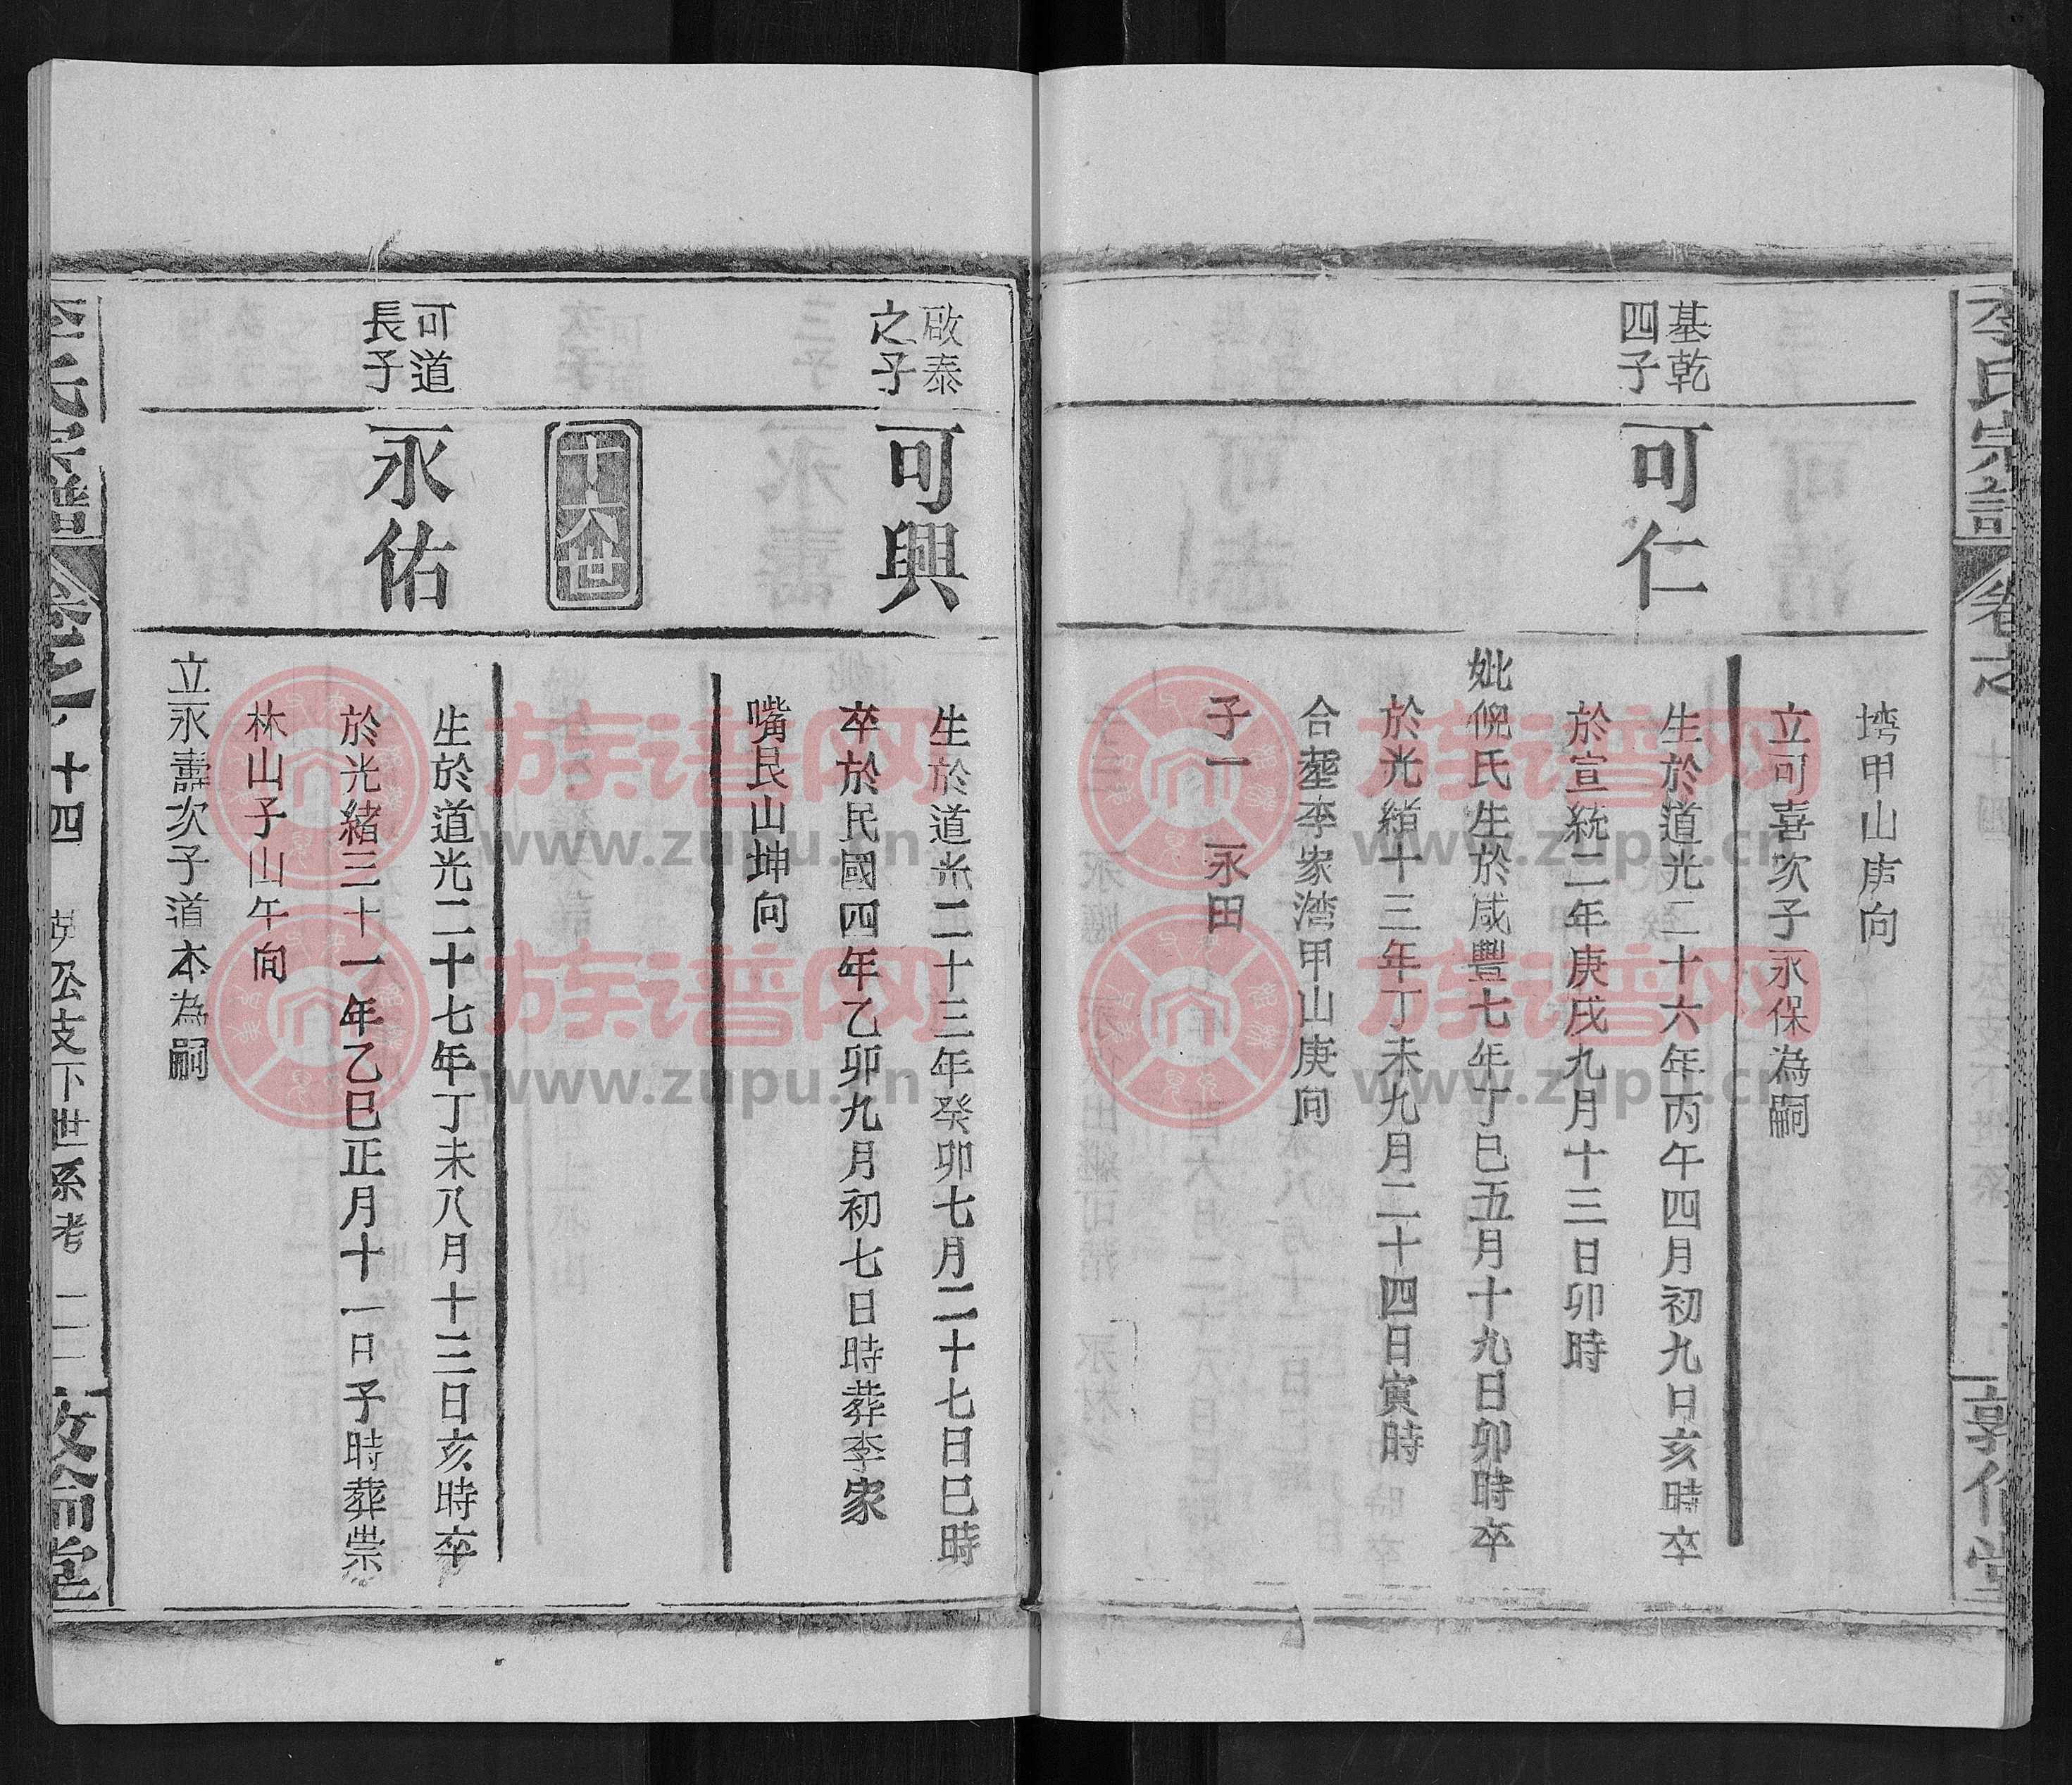 李氏宗譜
垮甲山庚向
立可喜次子永保為嗣
基乾
四子
可仁
生於道光二十六年丙午四月初九日亥時卒
於宣統二年庚戌九月十三日卯時
妣倪氏生於咸豐七年丁巳五月十九日卯時卒
於光緒十三年丁未九月二十四日寅時
合塟李家湾甲山庚向
子一 永田
啟泰
之子
可興
生於道光二十三年癸卯七月二十七日巳時
卒於民國四年乙卯九月初七日時葬李家
嘴艮山坤向
十六世
可道
長子
永佑
生於道光二十七年丁未八月十三日亥時卒
於光緒三十一年乙巳正月十一日子時葬柴
林山子山午向
立永壽次子道本為嗣
李氏宗譜
十四
公支下世系考
族谱网
www.zupu.cn
族谱网
www.zupu.cn
族谱网
www.zupu.cn
族谱网
www.zupu.cn